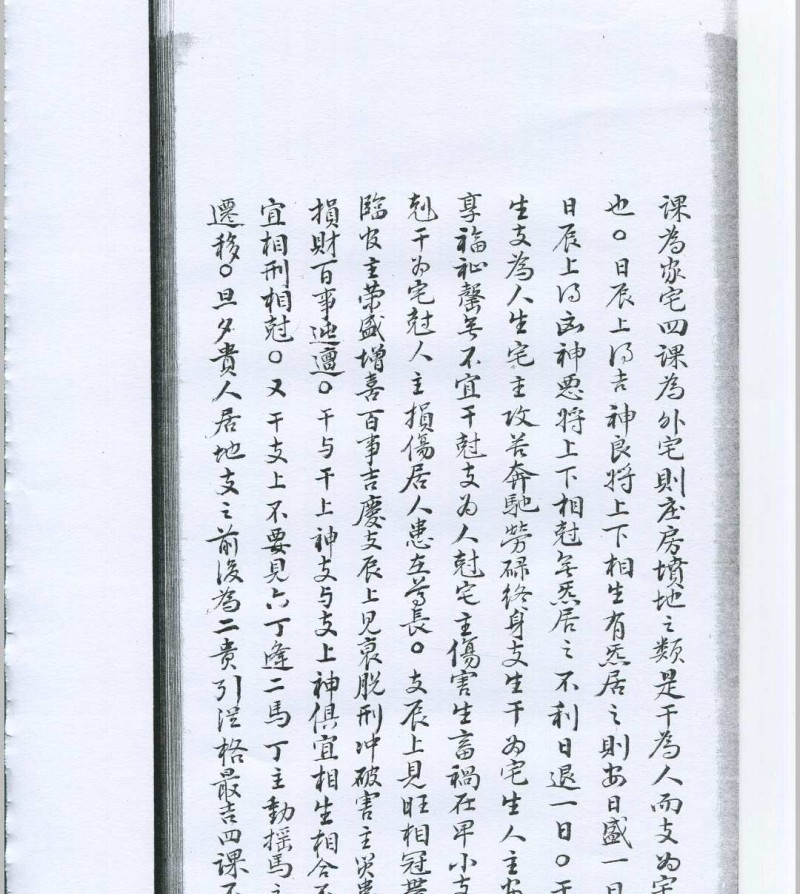 課為家宅四課為外宅則庄房墳地之類是干為人而支為宅
也○日辰上得吉神良將上下相生有炁居之則安日盛一日
日辰上得凶神悪將上下相尅無炁居之不利日退一日○干
生支為人生宅主攻苦奔馳勞碌終身支生干為宅生人主安
享福祉罄無不宜干尅支為人尅宅主傷害生畜禍在卑小支
尅干為宅尅人主損傷居人患在尊長○支辰上見旺相冠帶
臨官主荣盛增喜百事吉慶支辰上見衰脱刑冲破害主災
損財百事迍邅○干与干上神支与支上神俱宜相生相合不
宜相刑相尅○又干支上不要見六丁逢二馬丁主動揺馬主
遷移○旦夕貴人居地支之前後為二貴引從格最吉四課不